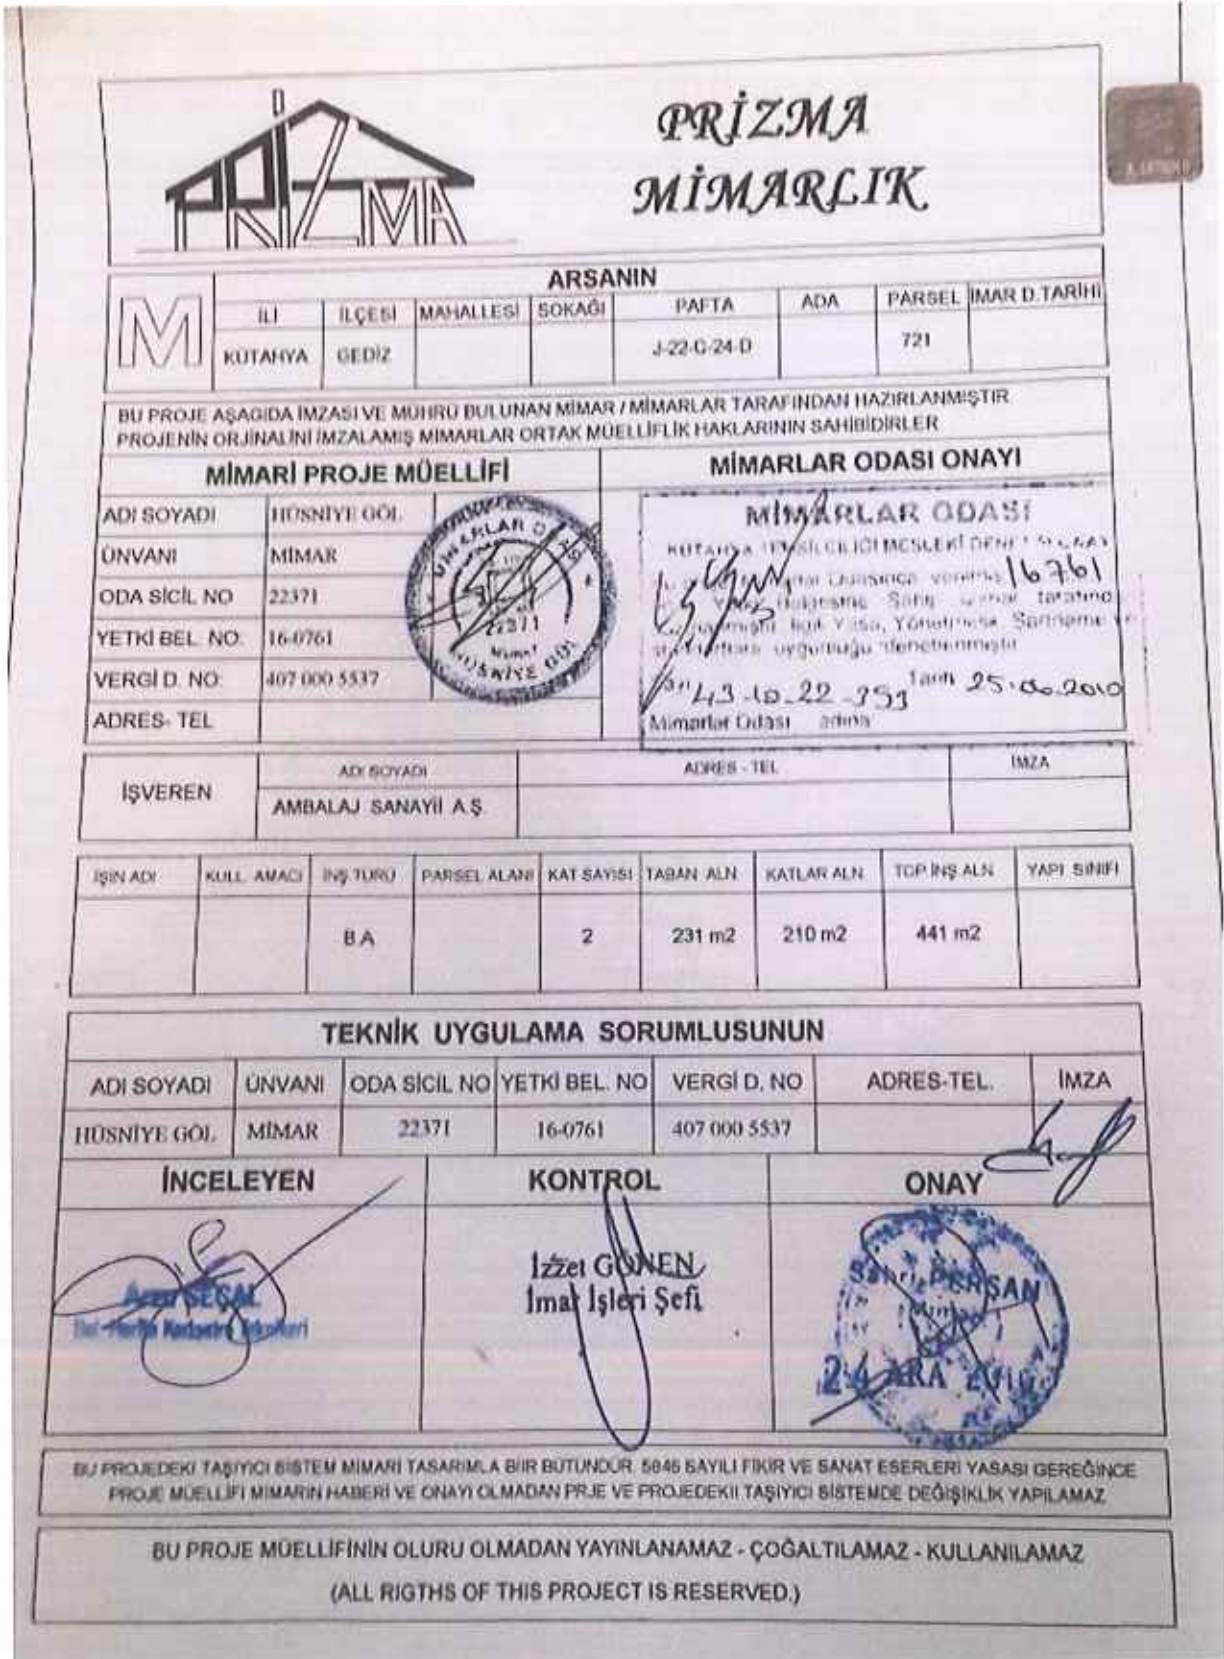 PRİZMA
PRİZMA
MİMARLIK
M
ARSANIN
İLİ İLÇESİ MAHALLESİ SOKAĞI PAFTA ADA PARSEL İMAR D.TARİHİ
KÜTAHYA GEDİZ J-22-C-24-D 721
BU PROJE AŞAGIDA İMZASI VE MÜHRÜ BULUNAN MİMAR / MİMARLAR TARAFINDAN HAZIRLANMIŞTIR
PROJENİN ORJİNALİNİ İMZALAMIŞ MİMARLAR ORTAK MÜELLİFLİK HAKLARININ SAHİBİDİRLER
MİMARİ PROJE MÜELLİFİ
ADI SOYADI HÜSNİYE GÖL
ÜNVANI MİMAR
ODA SİCİL NO 22371
YETKİ BEL. NO. 16-0761
VERGİ D. NO: 407 000 5537
ADRES- TEL
MİMARLAR ODASI
22371
Mimar
HÜSNİYE GÖL
MİMARLAR ODASI ONAYI
MİMARLAR ODASI
KÜTAHYA TEMSİLCİLİĞİ MESLEKİ DENETİM
Odasınca 16761
Belgesine Sahip
Yasa, Yönetmelik, Şartname ve
uygunluğu denetlenmiştir
43-10-22-353 Tarih 25.06.2010
Mimarlar Odası adına
İŞVEREN
ADI SOYADI ADRES - TEL İMZA
AMBALAJ SANAYİİ A.Ş.
İŞİN ADI KULL. AMACI İNŞ TÜRÜ PARSEL ALANI KAT SAYISI TABAN ALN KATLAR ALN. TOP.İNŞ ALN. YAPI SINIFI
B.A 2 231 m2 210 m2 441 m2
TEKNİK UYGULAMA SORUMLUSUNUN
ADI SOYADI ÜNVANI ODA SİCİL NO YETKİ BEL. NO VERGİ D. NO ADRES-TEL. İMZA
HÜSNİYE GÖL MİMAR 22371 16-0761 407 000 5537
İNCELEYEN KONTROL ONAY
SEÇAL
Harita Kadastro Teknikeri
İzzet GÖNEN
İmar İşleri Şefi
PERŞAN
Mimar
24 ARA 2010
BU PROJEDEKİ TAŞIYICI SİSTEM MİMARİ TASARIMLA BİİR BÜTÜNDÜR. 5846 SAYILI FİKİR VE SANAT ESERLERİ YASASI GEREĞİNCE
PROJE MÜELLİFİ MİMARIN HABERİ VE ONAYI OLMADAN PRJE VE PROJEDEKİİ TAŞIYICI SİSTEMDE DEĞİŞİKLİK YAPILAMAZ
BU PROJE MÜELLİFİNİN OLURU OLMADAN YAYINLANAMAZ - ÇOĞALTILAMAZ - KULLANILAMAZ
(ALL RIGTHS OF THIS PROJECT IS RESERVED.)